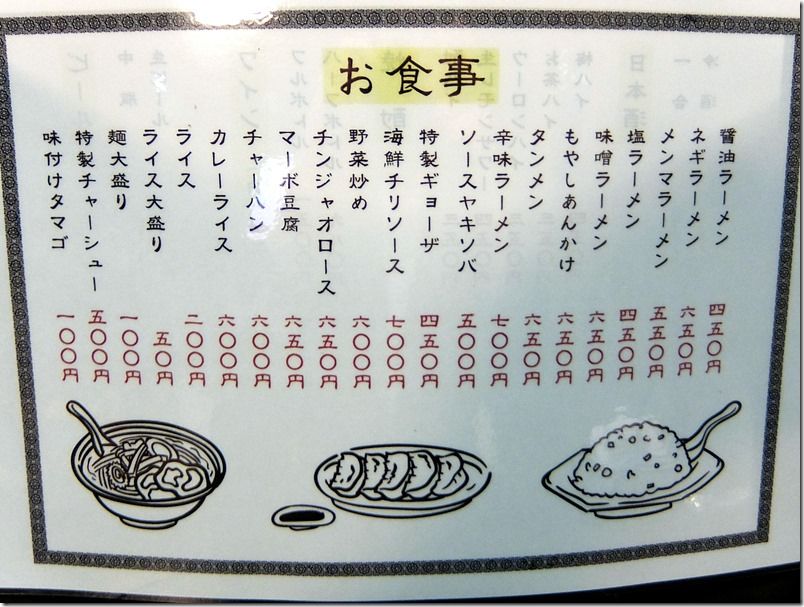 お食事
醤油ラーメン 四五〇円
ネギラーメン 六五〇円
メンマラーメン 五五〇円
塩ラーメン 四五〇円
味噌ラーメン 六五〇円
もやしあんかけ 六五〇円
タンメン 六五〇円
辛味ラーメン 七〇〇円
ソースヤキソバ 五〇〇円
特製ギョーザ 四五〇円
海鮮チリソース 七〇〇円
野菜炒め 六〇〇円
チンジャオロース 六五〇円
マーボ豆腐 六五〇円
チャーハン 六〇〇円
カレーライス 六〇〇円
ライス 二〇〇円
ライス大盛り 五〇円
麺大盛り 一〇〇円
特製チャーシュー 五〇〇円
味付けタマゴ 一〇〇円